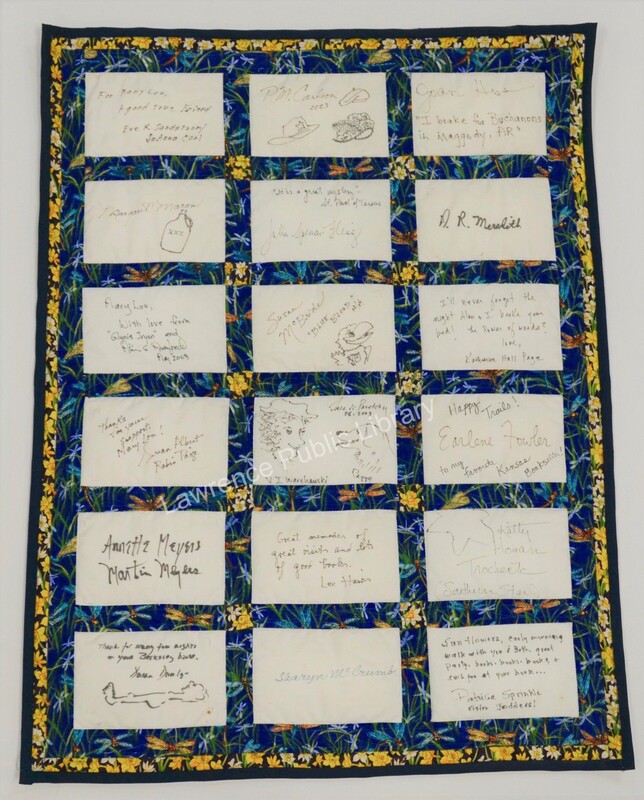 For Mary Lou,
A good time friend
Eve K. Sandstrom/
JoAnna Carl
P.M. Carlson
2003
Joan Hess
"I brake for Buchanons
in Maggody, AR"
Margaret Maron
XXX
"It is a great mystery"-
St. Paul of Tarsus
Julia Spencer-Fleming
D. R. Meredith
Mary Lou,
With love from
and
May 2003
Susan
McBride
"Blue Blood"
I'll never forget the
night Alan & I broke your
bed! The Power of words?
Love,
Katherine Hall Page
Thanks
I'm sure
support,
Mary Lou!
Susan Albert
Robin Paige
Sara N. Paretsky
2003
V I Warshawski
Peppy
Happy Trails!
Earlene Fowler
to my favorite Kansas
bookseller!
Annette Meyers
Martin Meyers
Great memories of
great visits and lots
of good books.
Lee Harris
Kathy
Hogan
Trocheck
(Southern Star)
Thanks for many fun nights
in your Berkeley house.
Susan Dunlap
Sharyn McCrumb
Sunflowers, early morning
walk with you & Beth, good
party, books-books-books, &
such fun at your house...
Patricia Sprinkle
Sister Goddess!
Lawrence Public Library